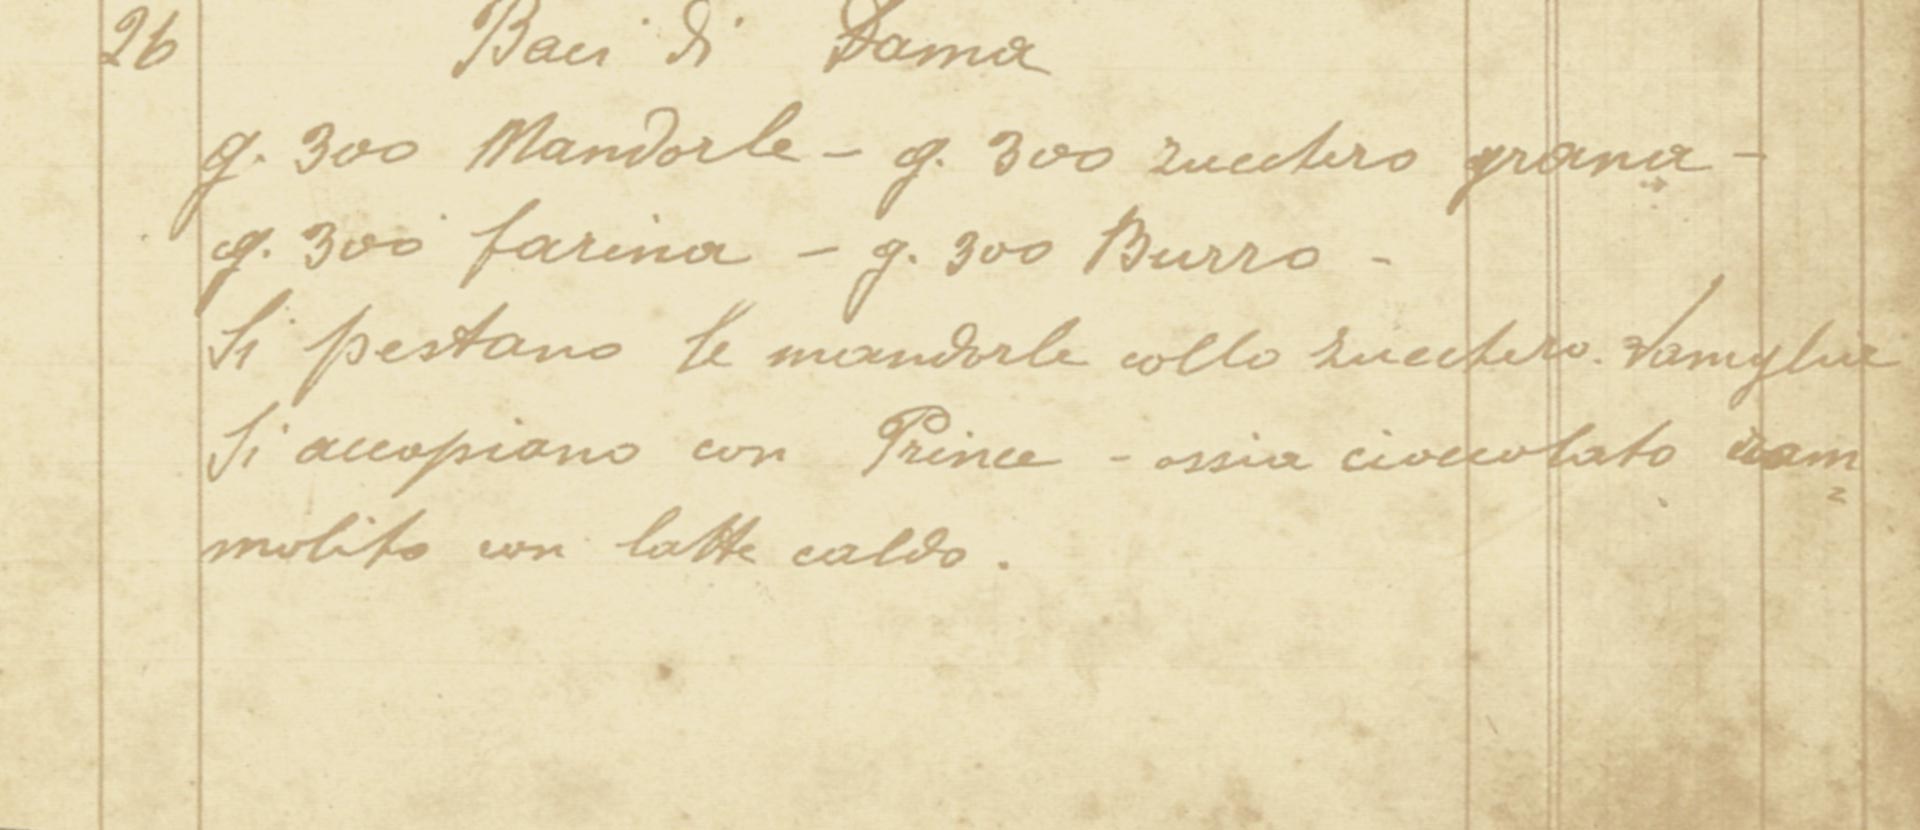 26 Baci di Dama
g. 300 Mandorle - g. 300 zucchero grana -
g. 300 farina - g. 300 Burro -
Si pestano le mandorle collo zucchero. Vaniglia
Si accopiano con Prince - ossia cioccolato ram=
molito con latte caldo.